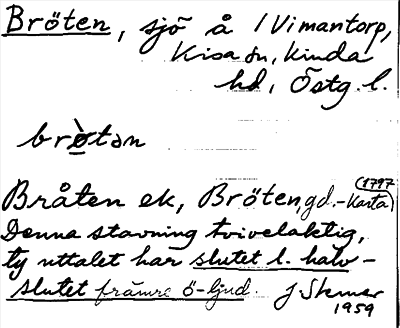 Bröten, sjö å 1 Vimantorp,
Kisa sn, Kinda
hd, Östg. l.
brøtan
Bråten ek, Bröten, gd.-Karta (1797)
Denna stavning tvivelaktig,
ty uttalet har slutet l. halv-
slutet främre ö-ljud. J Skener
1959